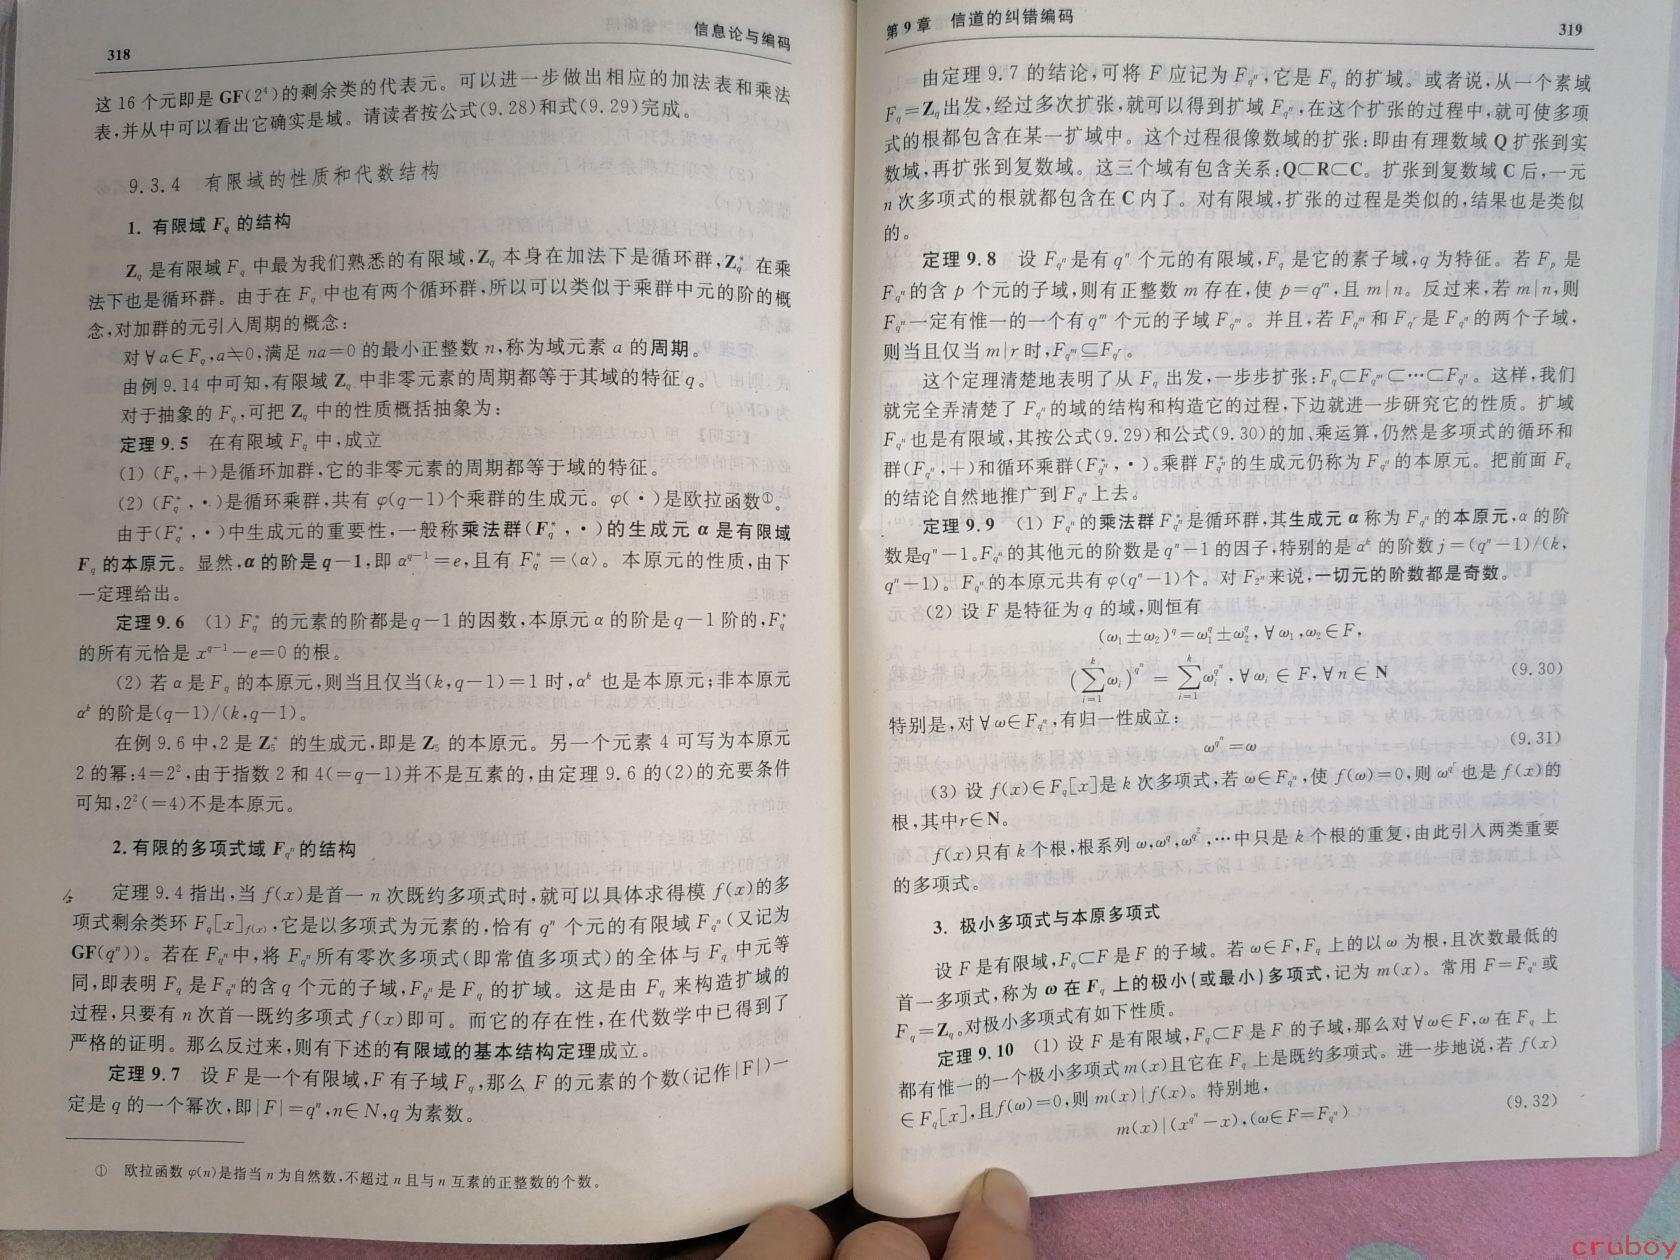 318
信息论与编码
这 16 个元即是 GF(2⁴)的剩余类的代表元。可以进一步做出相应的加法表和乘法
表,并从中可以看出它确实是域。请读者按公式(9.28)和式(9.29)完成。
9.3.4 有限域的性质和代数结构
1. 有限域 F_q 的结构
Z_q 是有限域 F_q 中最为我们熟悉的有限域,Z_q 本身在加法下是循环群,Z_q^* 在乘
法下也是循环群。由于在 F_q 中也有两个循环群,所以可以类似于乘群中元的阶的概
念,对加群的元引入周期的概念:
对∀a∈F_q,a≠0,满足 na=0 的最小正整数 n,称为域元素 a 的周期。
由例 9.14 中可知,有限域 Z_q 中非零元素的周期都等于其域的特征 q。
对于抽象的 F_q,可把 Z_q 中的性质概括抽象为:
定理 9.5 在有限域 F_q 中,成立
(1) (F_q,+)是循环加群,它的非零元素的周期都等于域的特征。
(2) (F_q^*,·)是循环乘群,共有 φ(q-1)个乘群的生成元。φ(·)是欧拉函数①。
由于(F_q^*,·)中生成元的重要性,一般称乘法群(F_q^*,·)的生成元 α 是有限域
F_q 的本原元。显然,α 的阶是 q-1,即 α^{q-1}=e,且有 F_q^*=⟨α⟩。本原元的性质,由下
一定理给出。
定理 9.6 (1) F_q^* 的元素的阶都是 q-1 的因数,本原元 α 的阶是 q-1 阶的,F_q^*
的所有元恰是 x^{q-1}-e=0 的根。
(2) 若 α 是 F_q 的本原元,则当且仅当(k,q-1)=1 时,α^k 也是本原元;非本原元
α^k 的阶是(q-1)/(k,q-1)。
在例 9.6 中,2 是 Z_5^* 的生成元,即是 Z_5 的本原元。另一个元素 4 可写为本原元
2 的幂:4=2²,由于指数 2 和 4(=q-1)并不是互素的,由定理 9.6 的(2)的充要条件
可知,2²(=4)不是本原元。
2. 有限的多项式域 F_{q^n} 的结构
定理 9.4 指出,当 f(x)是首一 n 次既约多项式时,就可以具体求得模 f(x)的多
项式剩余类环 F_q[x]_{f(x)},它是以多项式为元素的,恰有 q^n 个元的有限域 F_{q^n}(又记为
GF(q^n))。若在 F_{q^n} 中,将 F_{q^n} 所有零次多项式(即常值多项式)的全体与 F_q 中元等
同,即表明 F_q 是 F_{q^n} 的含 q 个元的子域,F_{q^n} 是 F_q 的扩域。这是由 F_q 来构造扩域的
过程,只要有 n 次首一既约多项式 f(x)即可。而它的存在性,在代数学中已得到了
严格的证明。那么反过来,则有下述的有限域的基本结构定理成立。
定理 9.7 设 F 是一个有限域,F 有子域 F_q,那么 F 的元素的个数(记作|F|)一
定是 q 的一个幂次,即|F|=q^n,n∈N,q 为素数。
① 欧拉函数 φ(n)是指当 n 为自然数,不超过 n 且与 n 互素的正整数的个数。
第 9 章 信道的纠错编码
319
由定理 9.7 的结论,可将 F 应记为 F_{q^n},它是 F_q 的扩域。或者说,从一个素域
F_q=Z_q 出发,经过多次扩张,就可以得到扩域 F_{q^n},在这个扩张的过程中,就可使多项
式的根都包含在某一扩域中。这个过程很像数域的扩张:即由有理数域 Q 扩张到实
数域,再扩张到复数域。这三个域有包含关系:Q⊂R⊂C。扩张到复数域 C 后,一元
n 次多项式的根就都包含在 C 内了。对有限域,扩张的过程是类似的,结果也是类似
的。
定理 9.8 设 F_{q^n} 是有 q^n 个元的有限域,F_q 是它的素子域,q 为特征。若 F_p 是
F_{q^n} 的含 p 个元的子域,则有正整数 m 存在,使 p=q^m,且 m|n。反过来,若 m|n,则
F_{q^n} 一定有惟一的一个有 q^m 个元的子域 F_{q^m}。并且,若 F_{q^m} 和 F_{q^r} 是 F_{q^n} 的两个子域,
则当且仅当 m|r 时,F_{q^m}⊆F_{q^r}。
这个定理清楚地表明了从 F_q 出发,一步步扩张:F_q⊂F_{q^m}⊂…⊂F_{q^n}。这样,我们
就完全弄清楚了 F_{q^n} 的域的结构和构造它的过程,下边就进一步研究它的性质。扩域
F_{q^n} 也是有限域,其按公式(9.29)和公式(9.30)的加、乘运算,仍然是多项式的循环和
群(F_{q^n},+)和循环乘群(F_{q^n}^*,·)。乘群 F_{q^n}^* 的生成元仍称为 F_{q^n} 的本原元。把前面 F_q
的结论自然地推广到 F_{q^n} 上去。
定理 9.9 (1) F_{q^n} 的乘法群 F_{q^n}^* 是循环群,其生成元 α 称为 F_{q^n} 的本原元,α 的阶
数是 q^n-1。F_{q^n} 的其他元的阶数是 q^n-1 的因子,特别的是 α^k 的阶数 j=(q^n-1)/(k,
q^n-1)。F_{q^n} 的本原元共有 φ(q^n-1)个。对 F_{2^n} 来说,一切元的阶数都是奇数。
(2) 设 F 是特征为 q 的域,则恒有
(ω₁±ω₂)^q=ω₁^q±ω₂^q,∀ω₁,ω₂∈F,
(∑_{i=1}^{k}ω_i)^{q^n} = ∑_{i=1}^{k}ω_i^{q^n},∀ω_i∈F,∀n∈N (9.30)
特别是,对∀ω∈F_{q^n},有归一性成立:
ω^{q^n}=ω (9.31)
(3) 设 f(x)∈F_q[x]是 k 次多项式,若 ω∈F_{q^n},使 f(ω)=0,则 ω^{q^r} 也是 f(x)的
根,其中 r∈N。
f(x)只有 k 个根,根系列 ω,ω^q,ω^{q²},…中只是 k 个根的重复,由此引入两类重要
的多项式。
3. 极小多项式与本原多项式
设 F 是有限域,F_q⊂F 是 F 的子域。若 ω∈F,F_q 上的以 ω 为根,且次数最低的
首一多项式,称为 ω 在 F_q 上的极小(或最小)多项式,记为 m(x)。常用 F=F_{q^n} 或
F_q=Z_q。对极小多项式有如下性质。
定理 9.10 (1) 设 F 是有限域,F_q⊂F 是 F 的子域,那么对∀ω∈F,ω 在 F_q 上
都有惟一的一个极小多项式 m(x)且它在 F_q 上是既约多项式。进一步地说,若 f(x)
∈F_q[x],且 f(ω)=0,则 m(x)|f(x)。特别地,
m(x)|(x^{q^n}-x),(ω∈F=F_{q^n}) (9.32)
cruboy